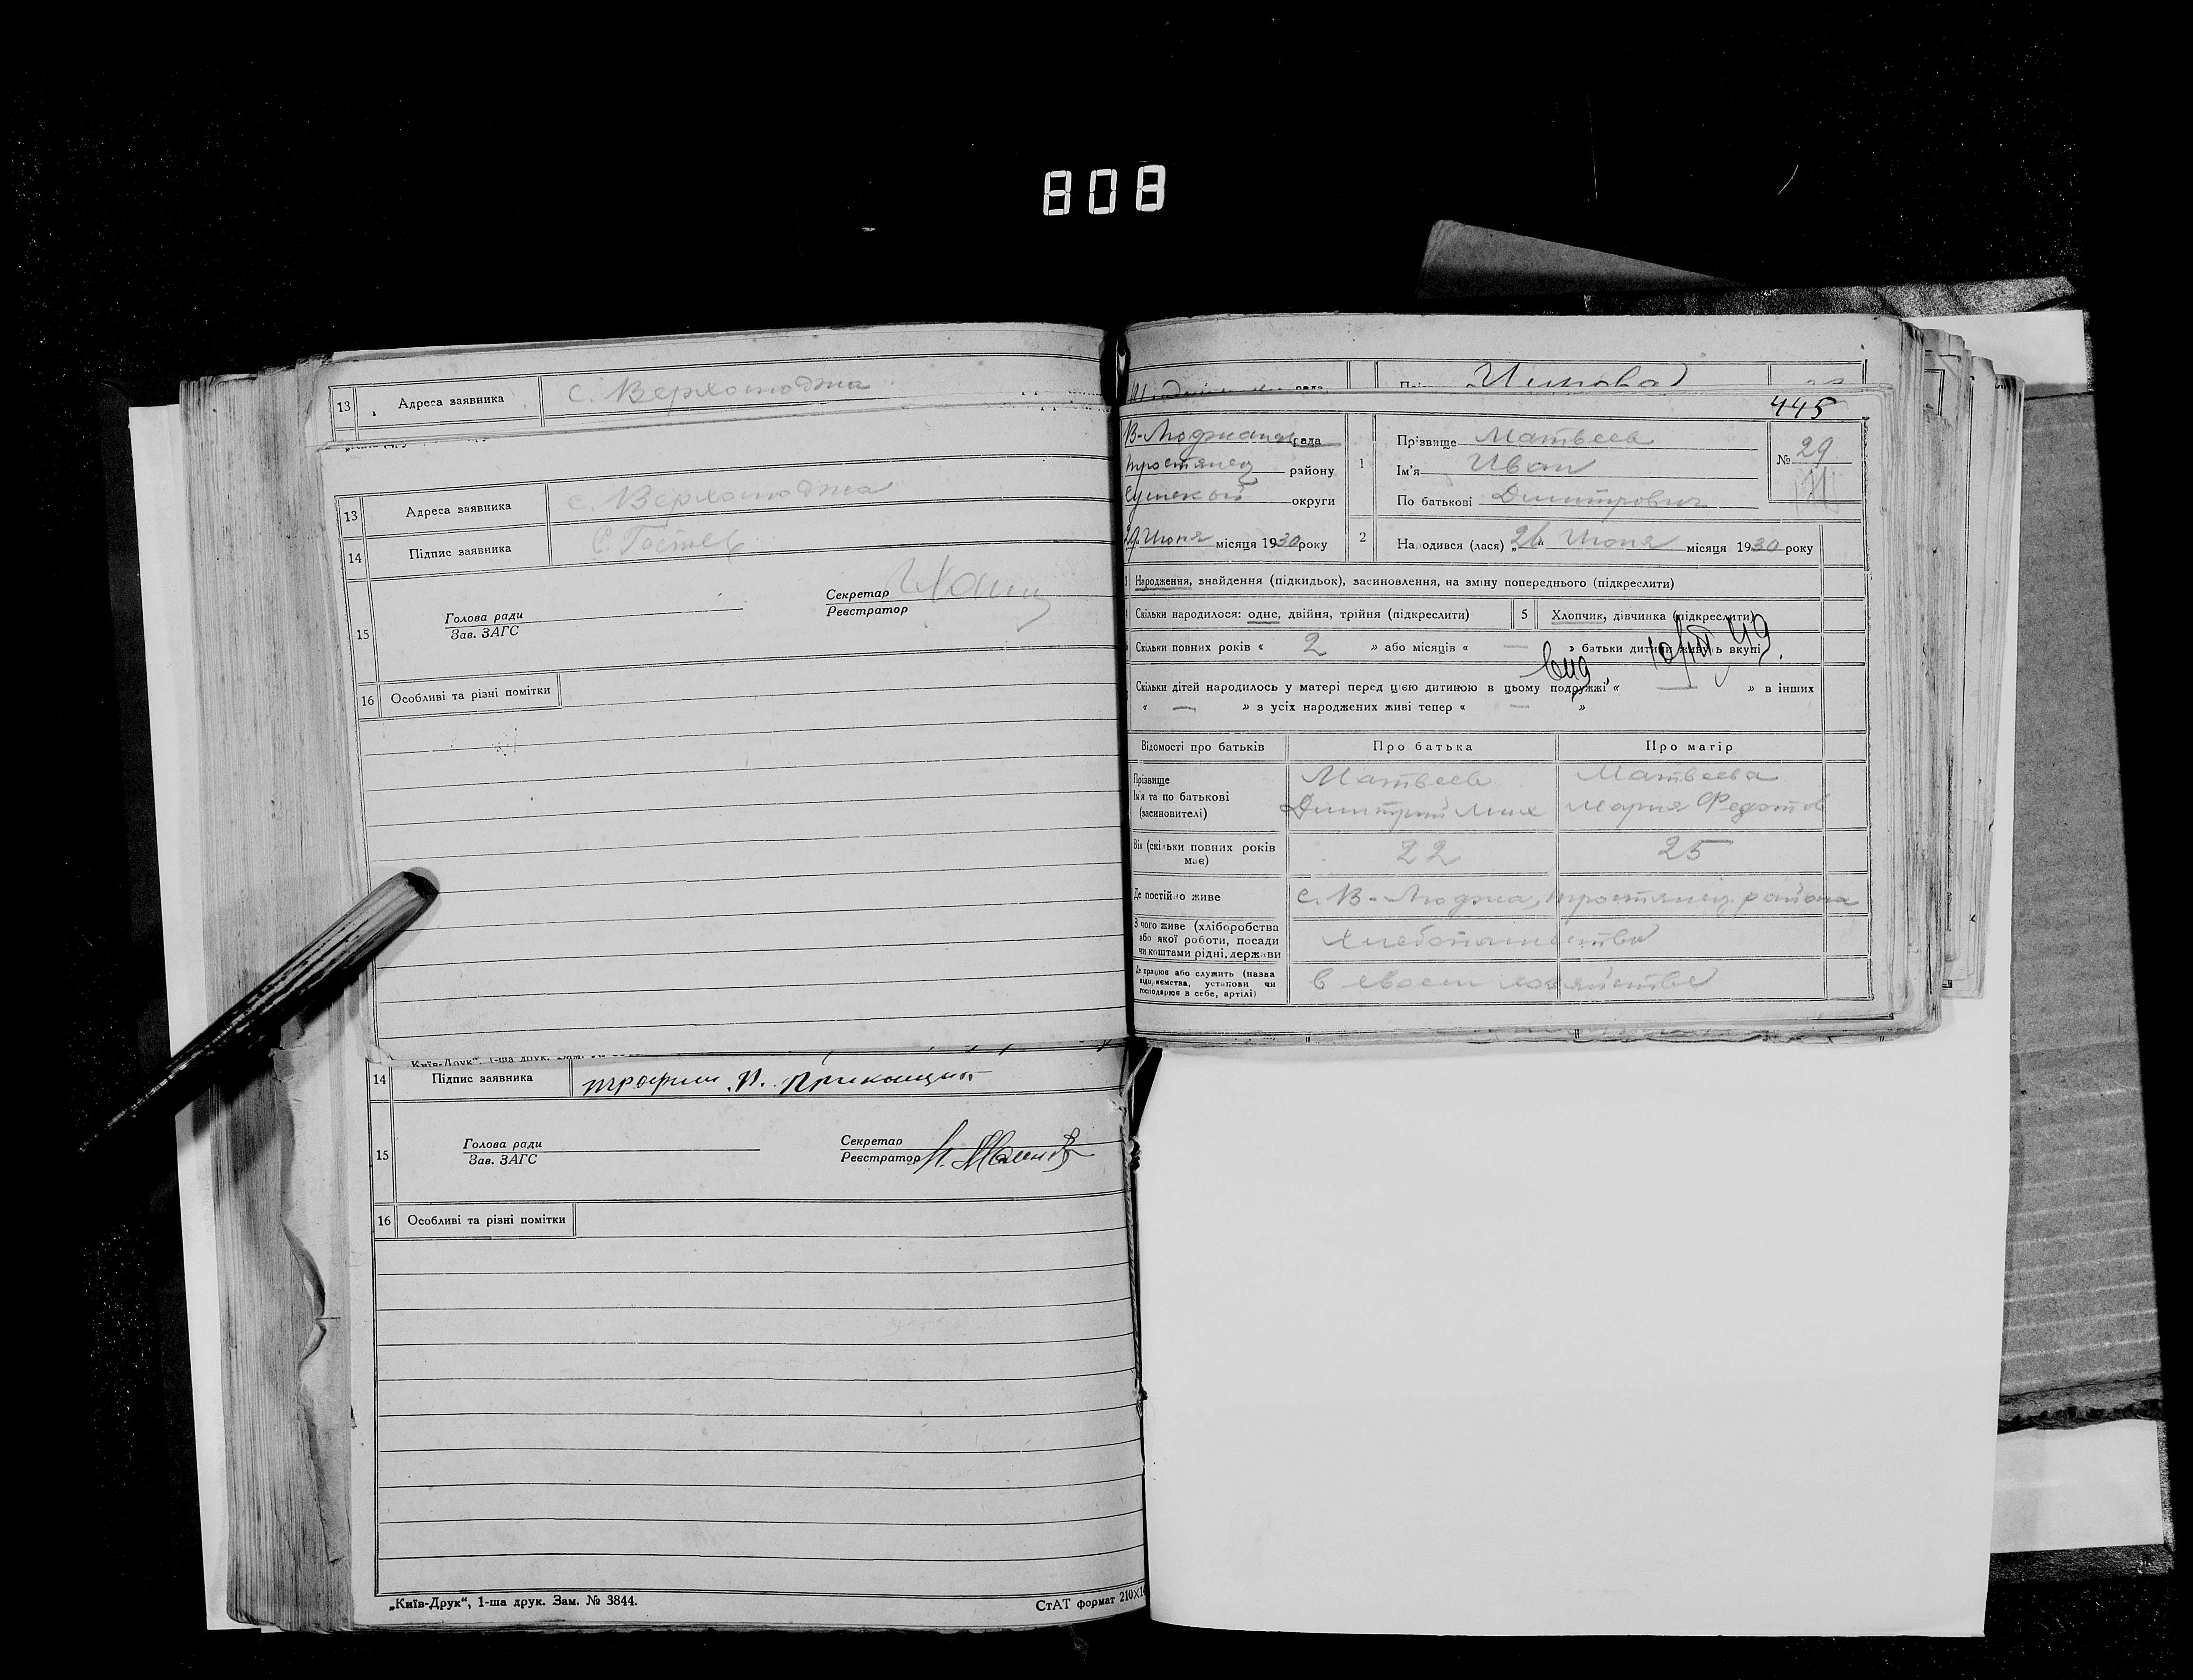 808
13 Адреса заявника с. Верхолюджа
13 Адреса заявника с. Верхолюджа
14 Підпис заявника С. Гостев
15 Голова ради
Зав. ЗАГС
Секретар
Реєстратор
16 Особливі та різні помітки
14 Підпис заявника
15 Голова ради
Зав. ЗАГС
Секретар
Реєстратор
16 Особливі та різні помітки
„Київ-Друк“, 1-ша друк. Зам. № 3844.
СтАТ формат 210×1
445
рада
Тростянец району
Сумской округи
29 Июня місяця 1930 року
1 Прізвище Матвеев
Ім'я Иван
По батькові Димитрович
№ 29
2 Народився (лася) „26“ Июня місяця 1930 року
Народження, знайдення (підкидьок), засиновлення, на зміну попереднього (підкреслити)
Скільки народилося: одне, двійня, трійня (підкреслити)
5 Хлопчик, дівчинка (підкреслити)
Скільки повних років « 2 » або місяців « — » батьки дитини живуть вкупі
Скільки дітей народилось у матері перед цією дитиною в цьому подружжі « — » в інших
« — » з усіх народжених живі тепер « — »
Відомості про батьків Про батька Про матір
Прізвище Матвеев Матвеева
Ім'я та по батькові Димитрий Мих Мария Федотов
(засиновителі)
Вік (скільки повних років має) 22 25
Де постійно живе с. В-Люджа, Тростянец. района
З чого живе (хліборобства або якої роботи, посади чи коштами рідні, держави хлебопашество
Де працює або служить (назва підприємства, установи чи господарює в себе, артілі) в своем хозяйстве